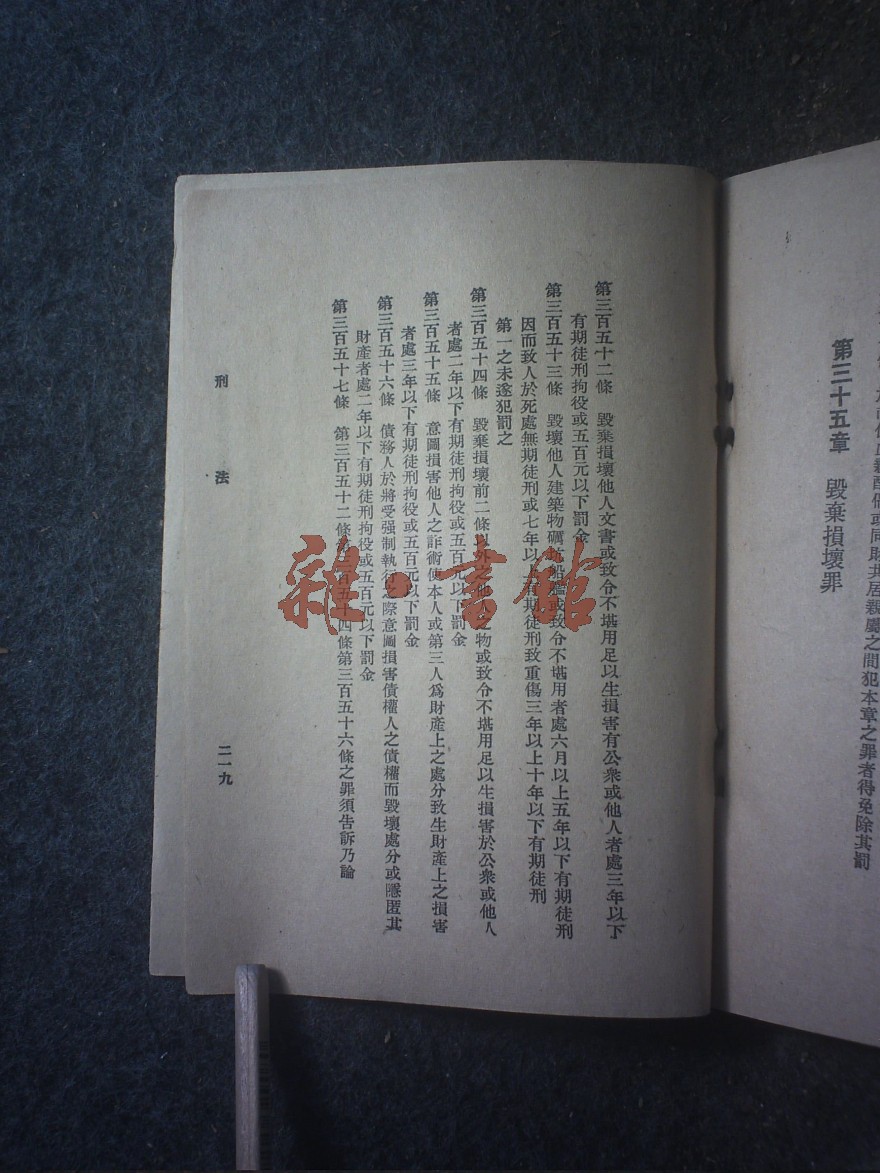 或同財共居親屬之間犯本章之罪者得免除其罰
第三十五章 毀棄損壞罪
第三百五十二條 毀棄損壞他人文書或致令不堪用足以生損害有公衆或他人者處三年以下
有期徒刑拘役或五百元以下罰金
第三百五十三條 毀壞他人建築物礦坑船艦或致令不堪用者處六月以上五年以下有期徒刑
因而致人於死處無期徒刑或七年以上有期徒刑致重傷三年以上十年以下有期徒刑
第一之未遂犯罰之
第三百五十四條 毀棄損壞前二條以外之他人之物或致令不堪用足以生損害於公衆或他人
者處二年以下有期徒刑拘役或五百元以下罰金
第三百五十五條 意圖損害他人之詐術使本人或第三人爲財產上之處分致生財產上之損害
者處三年以下有期徒刑拘役或五百元以下罰金
第三百五十六條 債務人於將受强制執行之際意圖損害債權人之債權而毀壞處分或隱匿其
財產者處二年以下有期徒刑拘役或五百元以下罰金
第三百五十七條 第三百五十二條第三百五十四條第三百五十六條之罪須告訴乃論
刑 法 二一九
雜·書館